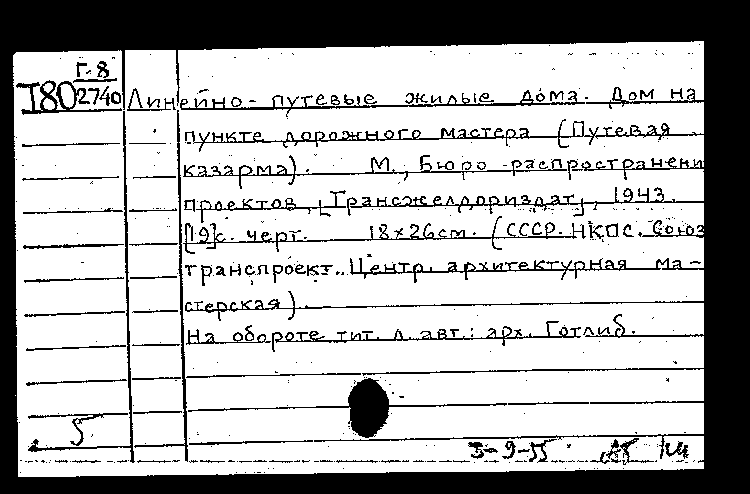 Г-8
I80 2740 Линейно-путевые жилые дома. Дом на
пункте дорожного мастера (Путевая
казарма). М., Бюро распространени
проектов, [Трансжелдориздат], 1943.
[19]с. черт. 18×26см. (СССР. НКПС. Союз
транспроект. Центр. архитектурная ма-
стерская).
На обороте тит. л. авт.: арх. Готлиб.
5
5-9-55